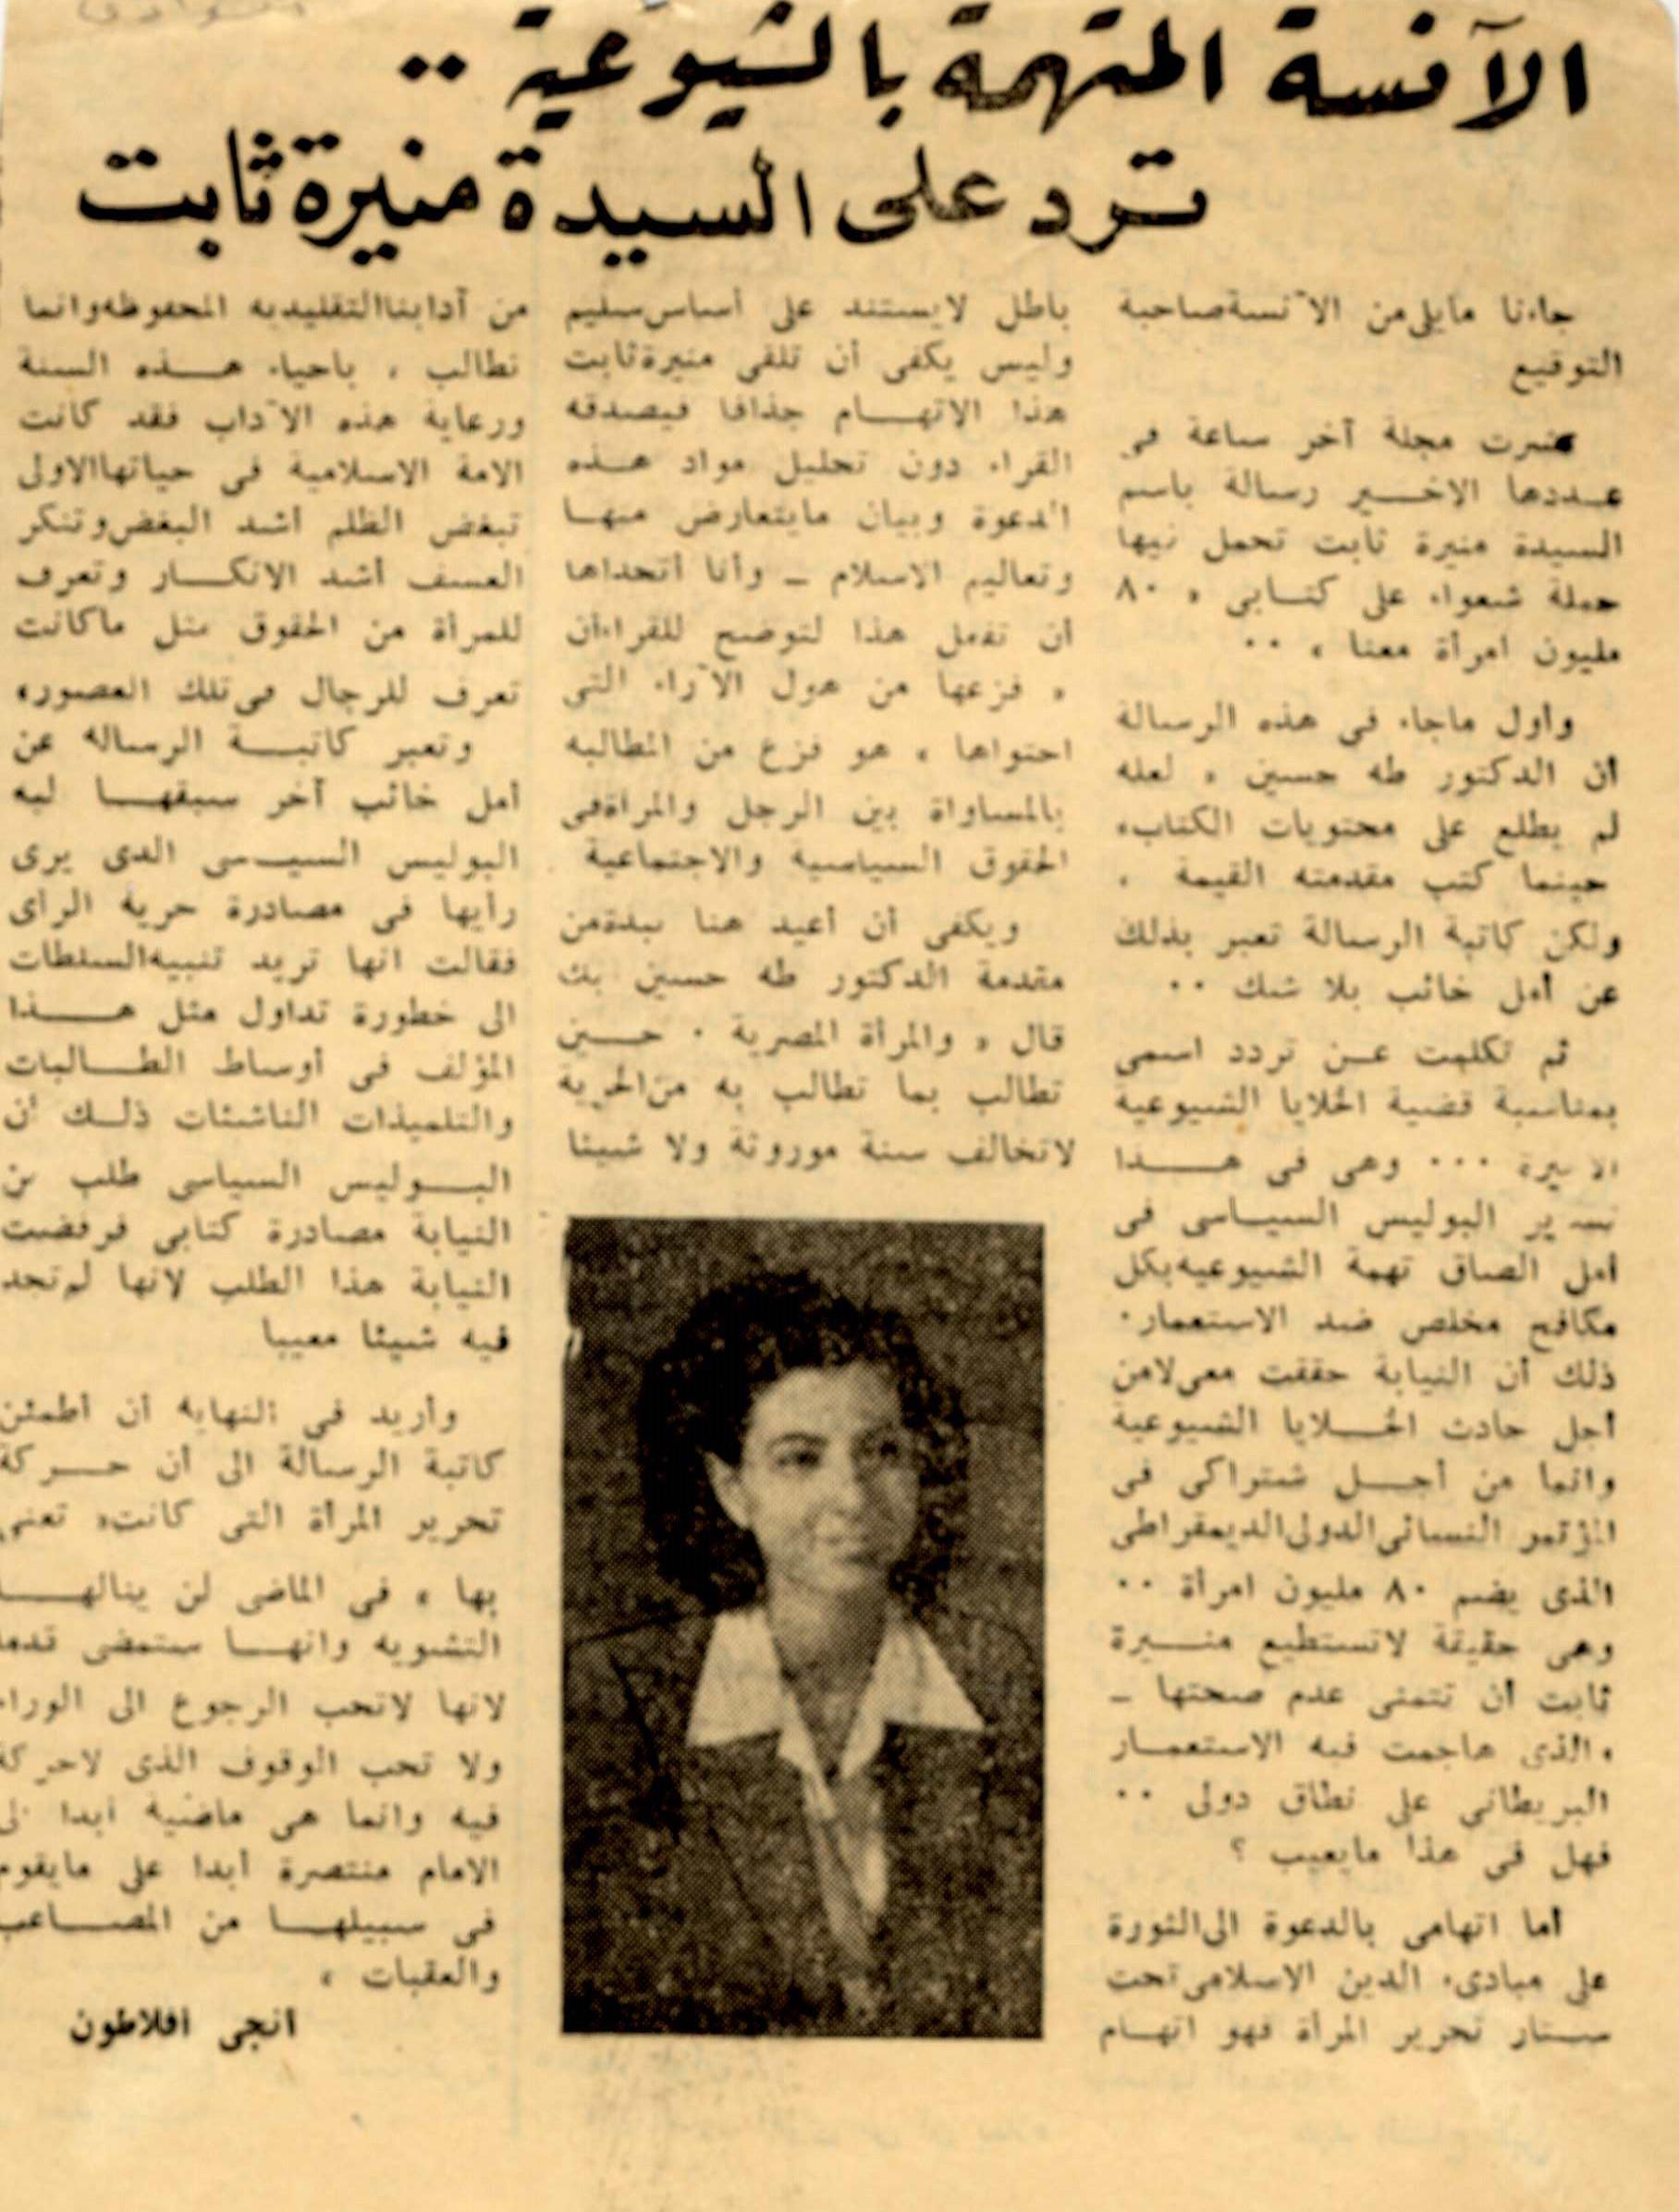 الآنسة المتهمة بالشيوعية ..
ترد على السيدة منيرة ثابت
جاءنا مايلى من الآنسة صاحبة
التوقيع
نشرت مجلة آخر ساعة فى
عددها الاخير رسالة باسم
السيدة منيرة ثابت تحمل فيها
حملة شعواء على كتابى « ٨٠
مليون امرأة معنا » ٠٠
وأول ماجاء فى هذه الرسالة
أن الدكتور طه حسين « لعله
لم يطلع على محتويات الكتاب»
حينما كتب مقدمته القيمة .
ولكن كاتبة الرسالة تعبر بذلك
عن أمل خائب بلا شك ٠٠
ثم تكلمت عن تردد اسمى
بمناسبة قضية الخلايا الشيوعية
٠٠٠ وهى فى هذا
البوليس السياسى فى
أمل الصاق تهمة الشيوعيه بكل
مكافح مخلص ضد الاستعمار.
ذلك أن النيابة حققت معى لا من
أجل حادث الخلايا الشيوعية
وانما من أجل شتراكى فى
المؤتمر النسائى الدولى الديمقراطى
الذى يضم ٨٠ مليون امرأة ٠٠
وهى حقيقة لاتستطيع منيرة
ثابت أن تتمنى عدم صحتها ـ
، الذى هاجمت فيه الاستعمار
البريطانى على نطاق دولى ٠٠
فهل فى هذا مايعيب ؟
أما اتهامى بالدعوة الى الثورة
على مبادىء الدين الاسلامى تحت
ستار تحرير المرأة فهو اتهام
باطل لايستند على أساس سليم
وليس يكفى أن تلقى منيرة ثابت
هذا الاتهام جذافا فيصدقه
القراء دون تحليل مواد هذه
الدعوة وبيان مايتعارض منها
وتعاليم الاسلام ـ وأنا أتحداها
أن تفعل هذا لتوضح للقراء أن
« فزعها من هول الآراء التى
احتواها » هو فزع من المطالبه
بالمساواة بين الرجل والمرأة فى
الحقوق السياسية والاجتماعية .
ويكفى أن أعيد هنا نبذة من
مقدمة الدكتور طه حسين بك
قال « والمرأة المصرية . حين
تطالب بما تطالب به من الحرية
لاتخالف سنة موروثة ولا شيئا
من آدابنا التقليديه المحفوظه وانما
تطالب ، باحياء هذه السنة
ورعاية هذه الآداب فقد كانت
الامة الاسلامية فى حياتها الاولى
تبغض الظلم أشد البغض وتنكر
العسف أشد الانكار وتعرف
للمرأة من الحقوق مثل ماكانت
تعرف للرجال فى تلك العصور»
وتعبر كاتبة الرساله عن
أمل خائب آخر سبقها ليه
البوليس السيسى الذى يرى
رأيها فى مصادرة حرية الرأى
فقالت انها تريد تنبيه السلطات
الى خطورة تداول مثل هذا
المؤلف فى أوساط الطالبات
والتلميذات الناشئات ذلك أن
البوليس السياسى طلب من
النيابة مصادرة كتابى فرفضت
النيابة هذا الطلب لانها لم تجد
فيه شيئا معيبا
وأريد فى النهايه أن أطمئن
كاتبة الرسالة الى أن حركة
تحرير المرأة التى كانت« تعنى
بها » فى الماضى لن ينالها
التشويه وانها ستمضى قدما
لانها لاتحب الرجوع الى الوراء
ولا تحب الوقوف الذى لاحركة
فيه وانما هى ماضية أبدا الى
الامام منتصرة أبدا على مايقوم
فى سبيلها من المصاعب
والعقبات »
انجى افلاطون